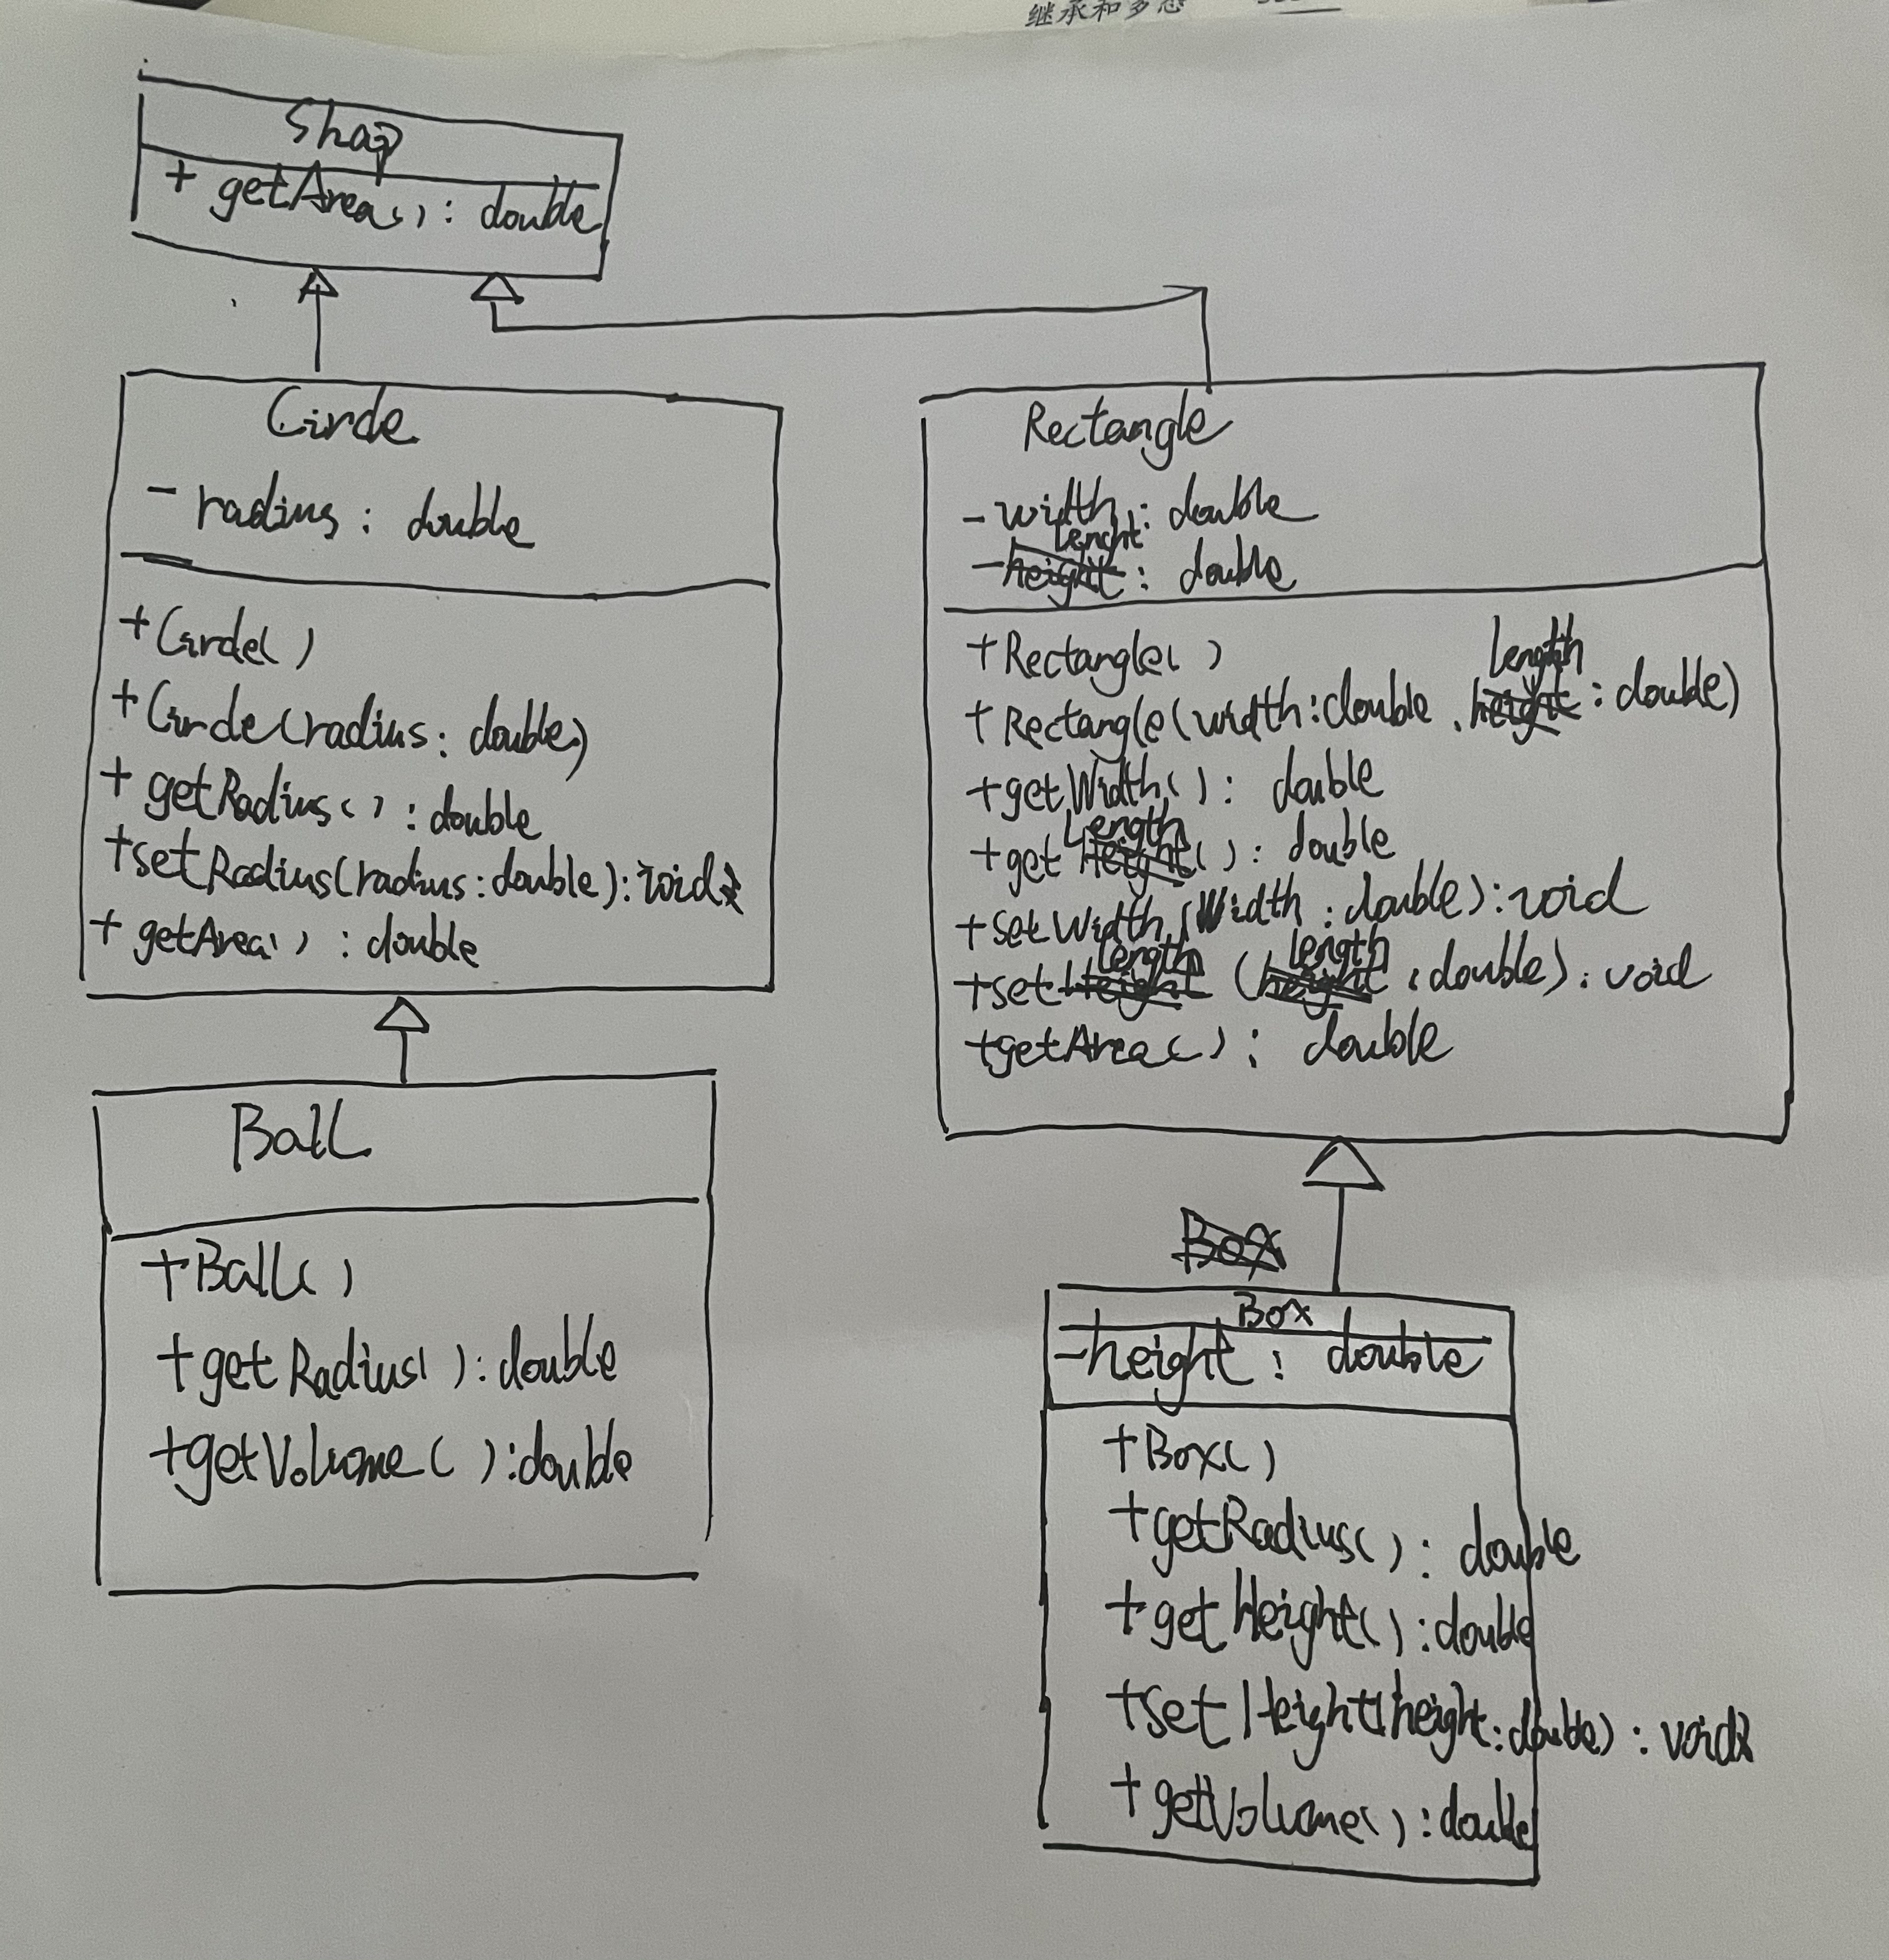 继承和多态
Shap
+ getArea(): double
Circle
- radius: double
+Circle()
+Circle(radius: double)
+ getRadius(): double
+setRadius(radius:double):void
+ getArea(): double
Ball
+Ball()
+getRadius():double
+getVolume():double
Rectangle
-width: double
-lenght: double
+Rectangle()
+Rectangle(width:double,length:double)
+getWidth(): double
+getLength(): double
+setWidth(Width:double):void
+setLength(length:double):void
+getArea(): double
Box
Box
-height: double
+Box()
+getRadius(): double
+getHeight():double
+setHeight(height:double):void
+getVolume():double